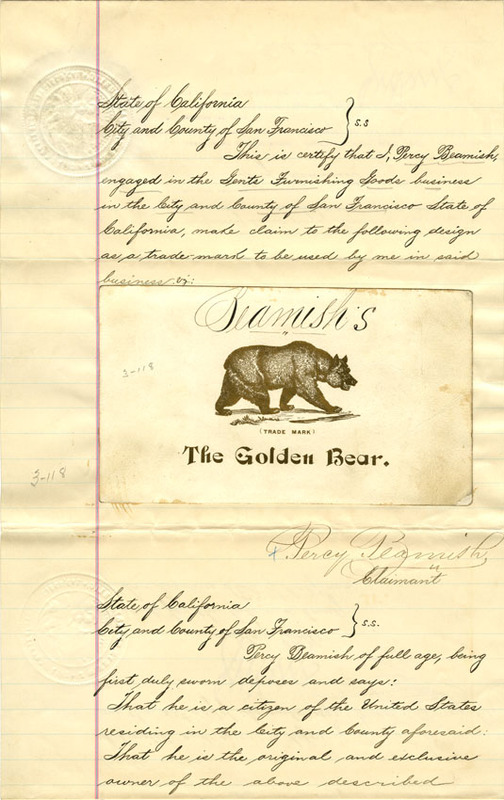 State of California
City and County of San Francisco } s.s
This is certify that I, Percy Beamish,
engaged in the Gents Furnishing Goods business
in the City and County of San Francisco State of
California, make claim to the following design
as a trade-mark to be used by me in said
business viz:
Beamish's
3-118
(TRADE MARK)
The Golden Bear.
3-118
x Percy Beamish
Claimant
State of California
City and County of San Francisco } s.s.
Percy Beamish of full age, being
first duly sworn deposes and says:
That he is a citizen of the United States
residing in the City and County aforesaid:
That he is the original and exclusive
owner of the above described